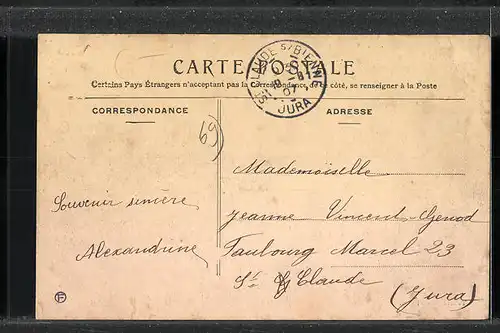 CARTE POSTALE
Certains Pays Étrangers n'acceptant pas la Correspondance de ce côté, se renseigner à la Poste
CORRESPONDANCE
ADRESSE
ST CLAUDE S/BIENNE
JURA
69
Souvenir sincère
Alexandrine
Mademoiselle
Jeanne Vincent-Genod
Faubourg Marcel 23
St Claude
(Jura)
F